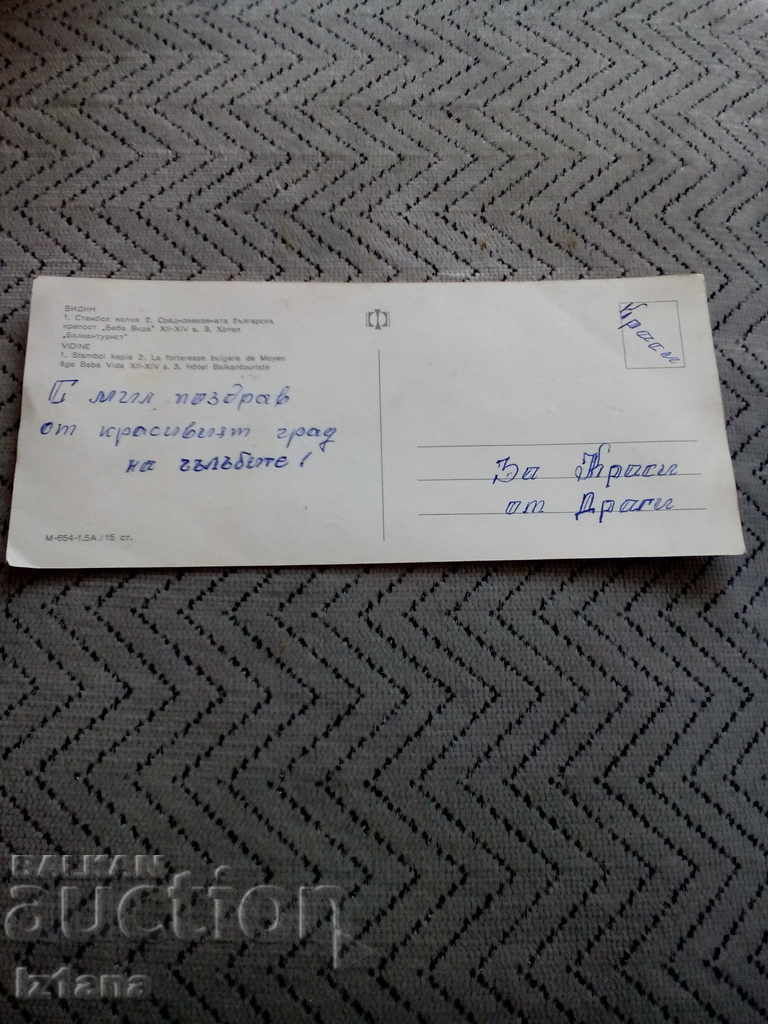 ВИДИН
1. Стамбол капия 2. Средновековната българска
крепост „Баба Вида" XII-XIV в. 3. Хотел
„Балкантурист"
VIDINE
1. Stambol kapia 2. La forteresse bulgare de Moyen
âge Baba Vida XII-XIV s. 3. Hôtel Balkantouriste
С мил поздрав
от красивият град
на гълъбите!
М-654-1,5А/15 ст.
Краси
За Краси
от Драги
BALKAN
auction
Iz1ana